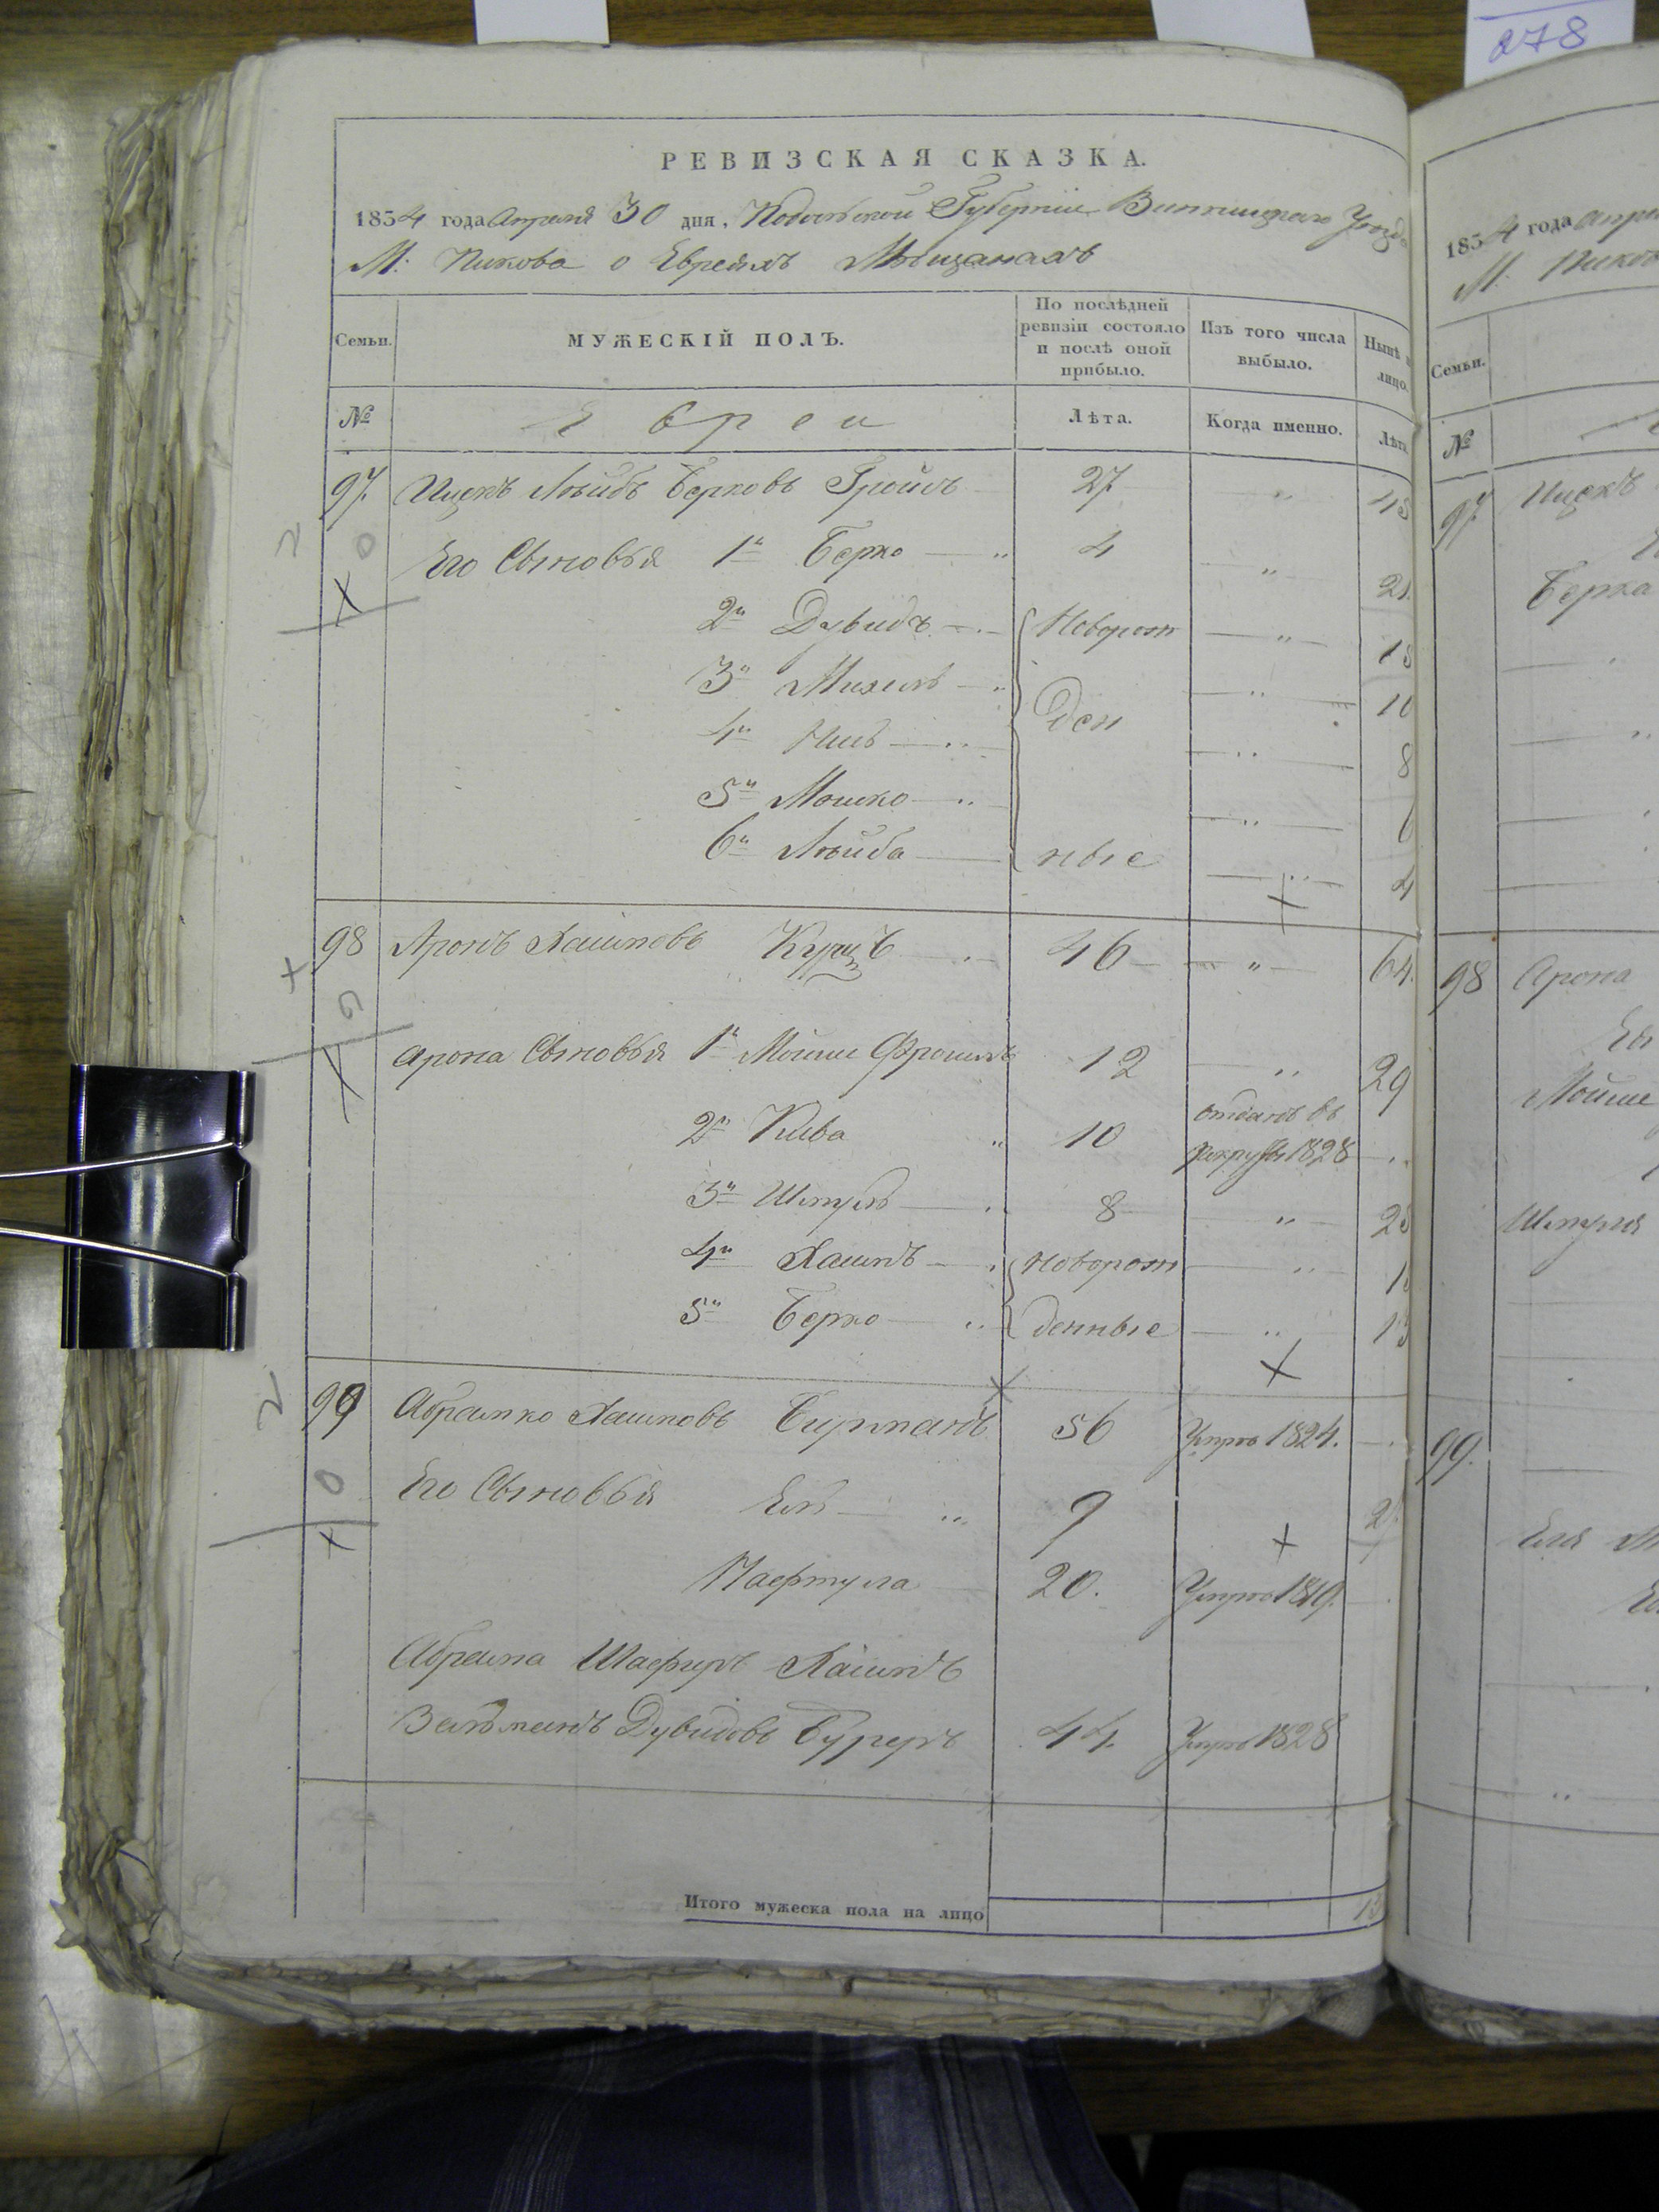 278
РЕВИЗСКАЯ СКАЗКА.
1854 года Апреля 30 дня, Подольской Губернии Винницкаго Уезда
М: Пикова о Евреяхъ Мѣщанахъ
Семьи. МУЖЕСКІЙ ПОЛЪ. По послѣдней ревизіи состояло и послѣ оной прибыло. Изъ того числа выбыло. Нынѣ на лицо.
№ Евреи Лѣта. Когда именно. Лѣта
97. Ицекъ Лейбъ Берковъ 27 " 45
Его Сыновья 1й Берко 4 " 21.
2й Дувидъ Новорож " 18
3й Михель ден " 10
4й " 8
5й Мошко " 6
6й Лейба ные " 4
98 Аронъ Хаимовъ Купцъ 46 " 64.
Арона Сыновья 1й Мойше Фроимъ 12 " 29
2й Кива 10 отданъ въ рекруты 1828
3й Шмуль 8 " 25
4й Хаимъ новорож "
5й Берко денные " 13
99 Абрамко Хаимовъ 56 Умре 1824.
Его Сыновья Ель 9
Нафтула 20. Умре 1819.
Абрама Шафиръ Хаимъ
Зельманъ Дувидовъ Буреръ 44. Умре 1828
Итого мужеска пола на лицо 13
1854 года Апре
М. Пиков
Семьи.
№
97. Ицекъ
Берка
98 Арона
Мойше
Шмуля
99.
Еля